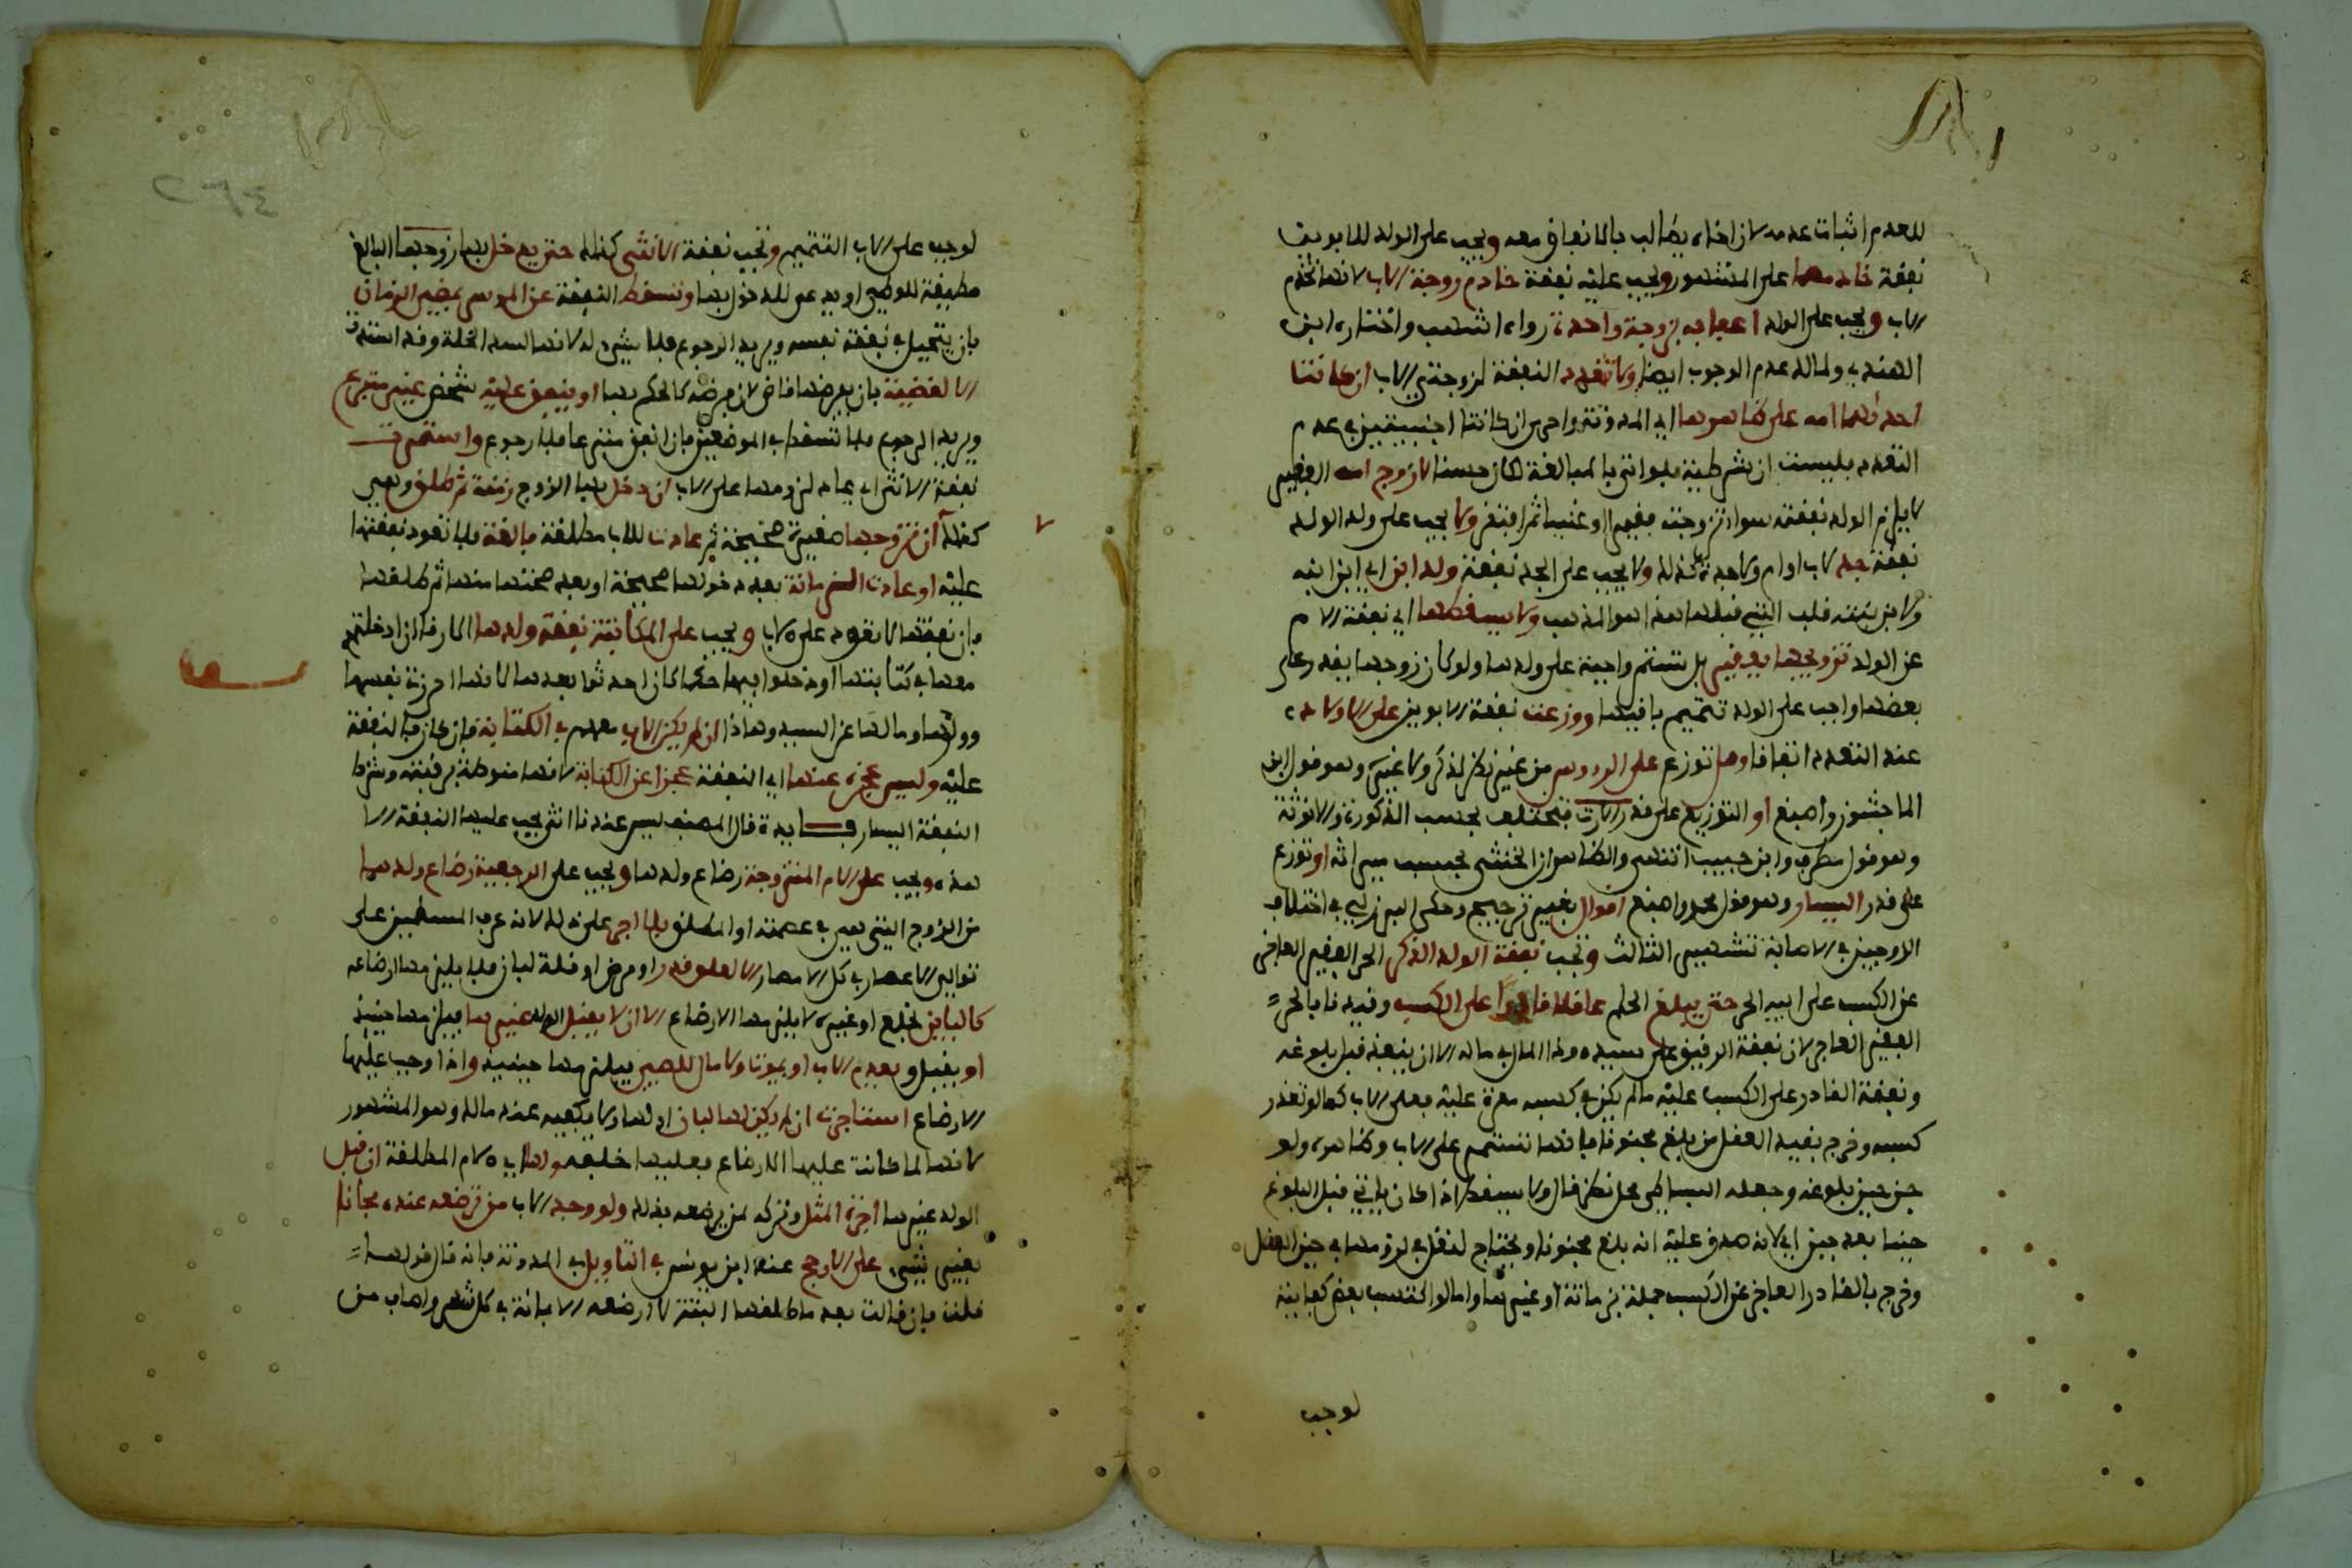 للعدم اثبات عدمه لان اخاه يطالب بالانفاق معه ويجب على الولد للابوين
نفقة خادمهما على المشهور ويجب عليه نفقة خادم زوجة الاب لانها تخدم
الاب ويجب على الولد اعفافه بزوجة واحدة رواه اشهب واختاره ابن
الهندي ولمالك عدم الوجوب ايضا ولا تتعدد النفقة لزوجتي الاب ان كانتا
احداهما امه على ظاهرها اي المدونة واحرى ان كانتا اجنبيتين في عدم
التعدد فليست ان شرطية فلو اتى بالمبالغة لكان حسنا لا زوج امه الفقير
لا يلزم الولد نفقته سواء تزوجته فقيرا او غنيا ثم افتقر ولا يجب على ولد الولد
نفقة جد لاب او ام ولا جدة كذلك ولا يجب على الجد نفقة ولد ابن اي ابن ابنه
ولابن بنته قلب التي قبلها هذا هو المذهب ولا يسقطها اي نفقة الام
عن الولد تزويجها بفقير بل تستمر واجبة على ولدها ولو كان زوجها يقدر على
بعضها وجب على الولد تتميم باقيها ووزعت نفقة الابوين على الاولاد
عند التعدد اتفاقا وهل توزع على الرءوس من غير نظر لذكر ولا غيره وهو قول ابن
الماجشون واصبغ او التوزيع على قدر الارث فتختلف بحسب الذكورة والانوثة
وهو قول مطرف وابن حبيب انتهى والظاهر ان الخنثى بحسب ميراثه او توزع
على قدر اليسار وهو قول محمد واصبغ اقوال بغير ترجيح وحكى البرزلي في اختلاف
الزوجين في الاصابة تشهير الثالث وتجب نفقة الولد الذكر الحر الفقير العاجز
عن الكسب على ابيه الحر حتى يبلغ الحلم عاقلا قادرا على الكسب وقيدنا بالحر
الفقير العاجز لان نفقة الرفيق على سيده وذا المال في ماله الا ان ينفذ قبل بلوغه
ونفقة القادر على الكسب عليه ما لم يكن في كسبه معرة عليه فعلى الاب كما لو تعذر
كسبه وخرج بقيد العقل من بلغ مجنونا فانها تستمر على الاب وظاهره ولو
جن حين بلوغه وجعله البساطي محل نظر قال ولا يسقط اذا كان ياتي قبل البلوغ
حينا بعد حين اي لانه صدق عليه انه بلغ مجنونا ويحتاج لنقل في لزومها في حين العقل
وخرج بالقادر العاجز عن الكسب جملة بزمانة او غيرها واما لو اكتسب بعض كفايته
لوجب
٢٦٤
لوجب على الاب التتميم وتجب نفقة الانثى كذلك حتى يدخل بها زوجها البالغ
مطيقة للوطي او يدعى للدخول بها وتسقط النفقة عن الموسر بمضي الزمان
فان يتحيل في نفقة نفسه ويريد الرجوع فلا شيء له لانها لسد الخلة وقد استدت
الا لقضية بان يفرضها قاض لان فرضه كالحكم بها او ينفق عليه شخص غير متبرع
ويريد الرجوع فلا تسقط في الموضعين فان انفق متبرعا فلا رجوع واستمرت
نفقة الانثى اي عاد لزومها على الاب ان دخل بها الزوج زمنة ثم طلق وهي
كذلك لا ان تزوجها صغيرة صحيحة ثم عادت للاب مطلقة بالغة فلا تعود نفقتها
عليه او عادت الزمانة بعد دخولها صحيحة او بعد صحتها منها ثم طلقها
فان نفقتها لا تعود على الاب ويجب على المكاتبة نفقة ولدها الارقاء ان ادخلتهم
معها في كتابتها او دخلوا فيها حكما كان احدثوا بعدها لانها احرزت نفسها
وولدها ومالها عن السيد وهذا ان لم يكن الاب معهم في الكتابة فان كان فالنفقة
عليه وليس عجزه عنها اي النفقة عجزا عن الكتابة لانها منوطة برقبته وشرط
النفقة اليسار فايدة قال المصنف ليس عندنا انثى يجب عليها النفقة الا
هذه ويجب على الام المتزوجة رضاع ولدها ويجب على الرجعية رضاع ولدها
من الزوج التي هي في عصمته او المطلق بلا اجر على ذلك لانه عرف المسلمين على
توالي الاعصار في كل الامصار الا لعلو قدر او مرض او قلة لبان فلا يلزمها ارضاعه
كالباين بخلع او غيره لا يلزمها الارضاع الا ان لا يقبل الولد غيرها فيلزمها حينئذ
او يقبل ويعدم الاب او يموت ولا مال للصبي فيلزمها حينئذ واذا وجب عليها
الارضاع استاجرت ان لم يكن لها لبان او لها ولا يكفيه عند مالك وهو المشهور
لانها لما كانت عليها الارضاع فعليها خلفه ولها اي لام المطلقة ان قبل
الولد غيرها اجرة المثل وتركه لمن يرضعه بذلك ولو وجد الاب من ترضعه عنده مجانا
بغير شيء على الارجح عند ابن يونس في التاويل في المدونة فانه قال قولها
قلت فان قالت بعد ما طلقها البتة لا ارضعه الا بمائة في كل شهر واصاب من